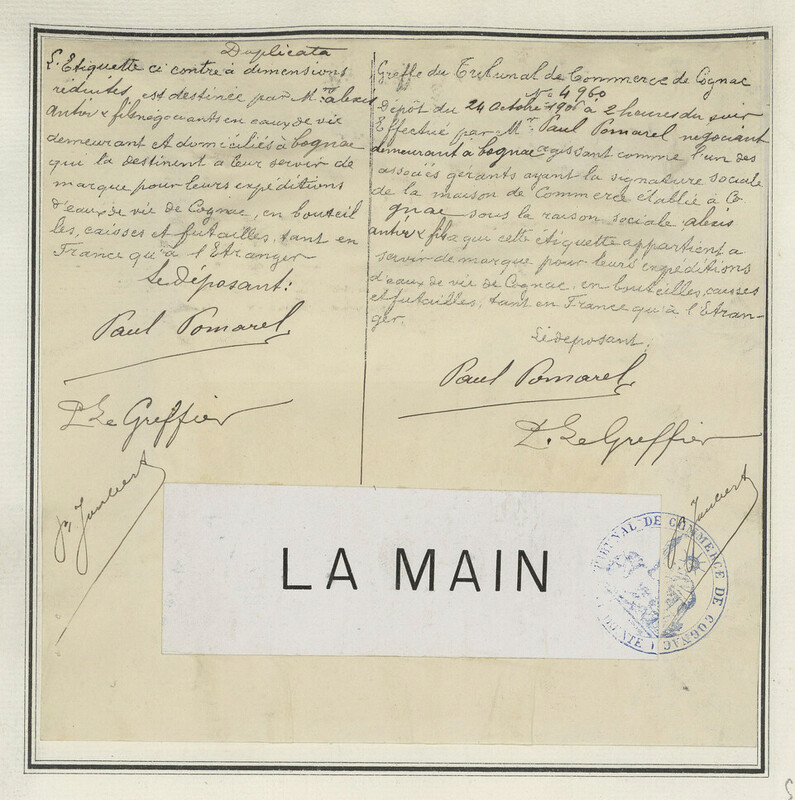 Duplicata
L'Etiquette ci contre à dimensions
réduites, est destinée par Mrs alexis
antier & fils négociants en eaux de vie
demeurant et domiciliés à Cognac
qui la destinent à leur servir de
marque pour leurs expéditions
d'eaux de vie de Cognac, en bouteil
les, caisses et futailles, tant en
France qu'à l'Etranger
Le Déposant:
Paul Pomarel
P. Le Greffier
Greffe du Tribunal de Commerce de Cognac
No 4960
Dépôt du 24 Octobre à 2 heures du soir
Effectué par Mr. Paul Pomarel négociant
demeurant à Cognac agissant comme l'un des
associés gérants ayant la signature sociale
de la maison de Commerce établie à Co
gnac sous la raison sociale alexis
antier & fils a qui cette étiquette appartient a
servir de marque pour leurs expéditions
d'eaux de vie de Cognac, en bouteilles, caisses
et futailles, tant en France qu'à l'Etran-
ger.
Le déposant,
Paul Pomarel
P. Le Greffier
LA MAIN
TRIBUNAL DE COMMERCE DE COGNAC